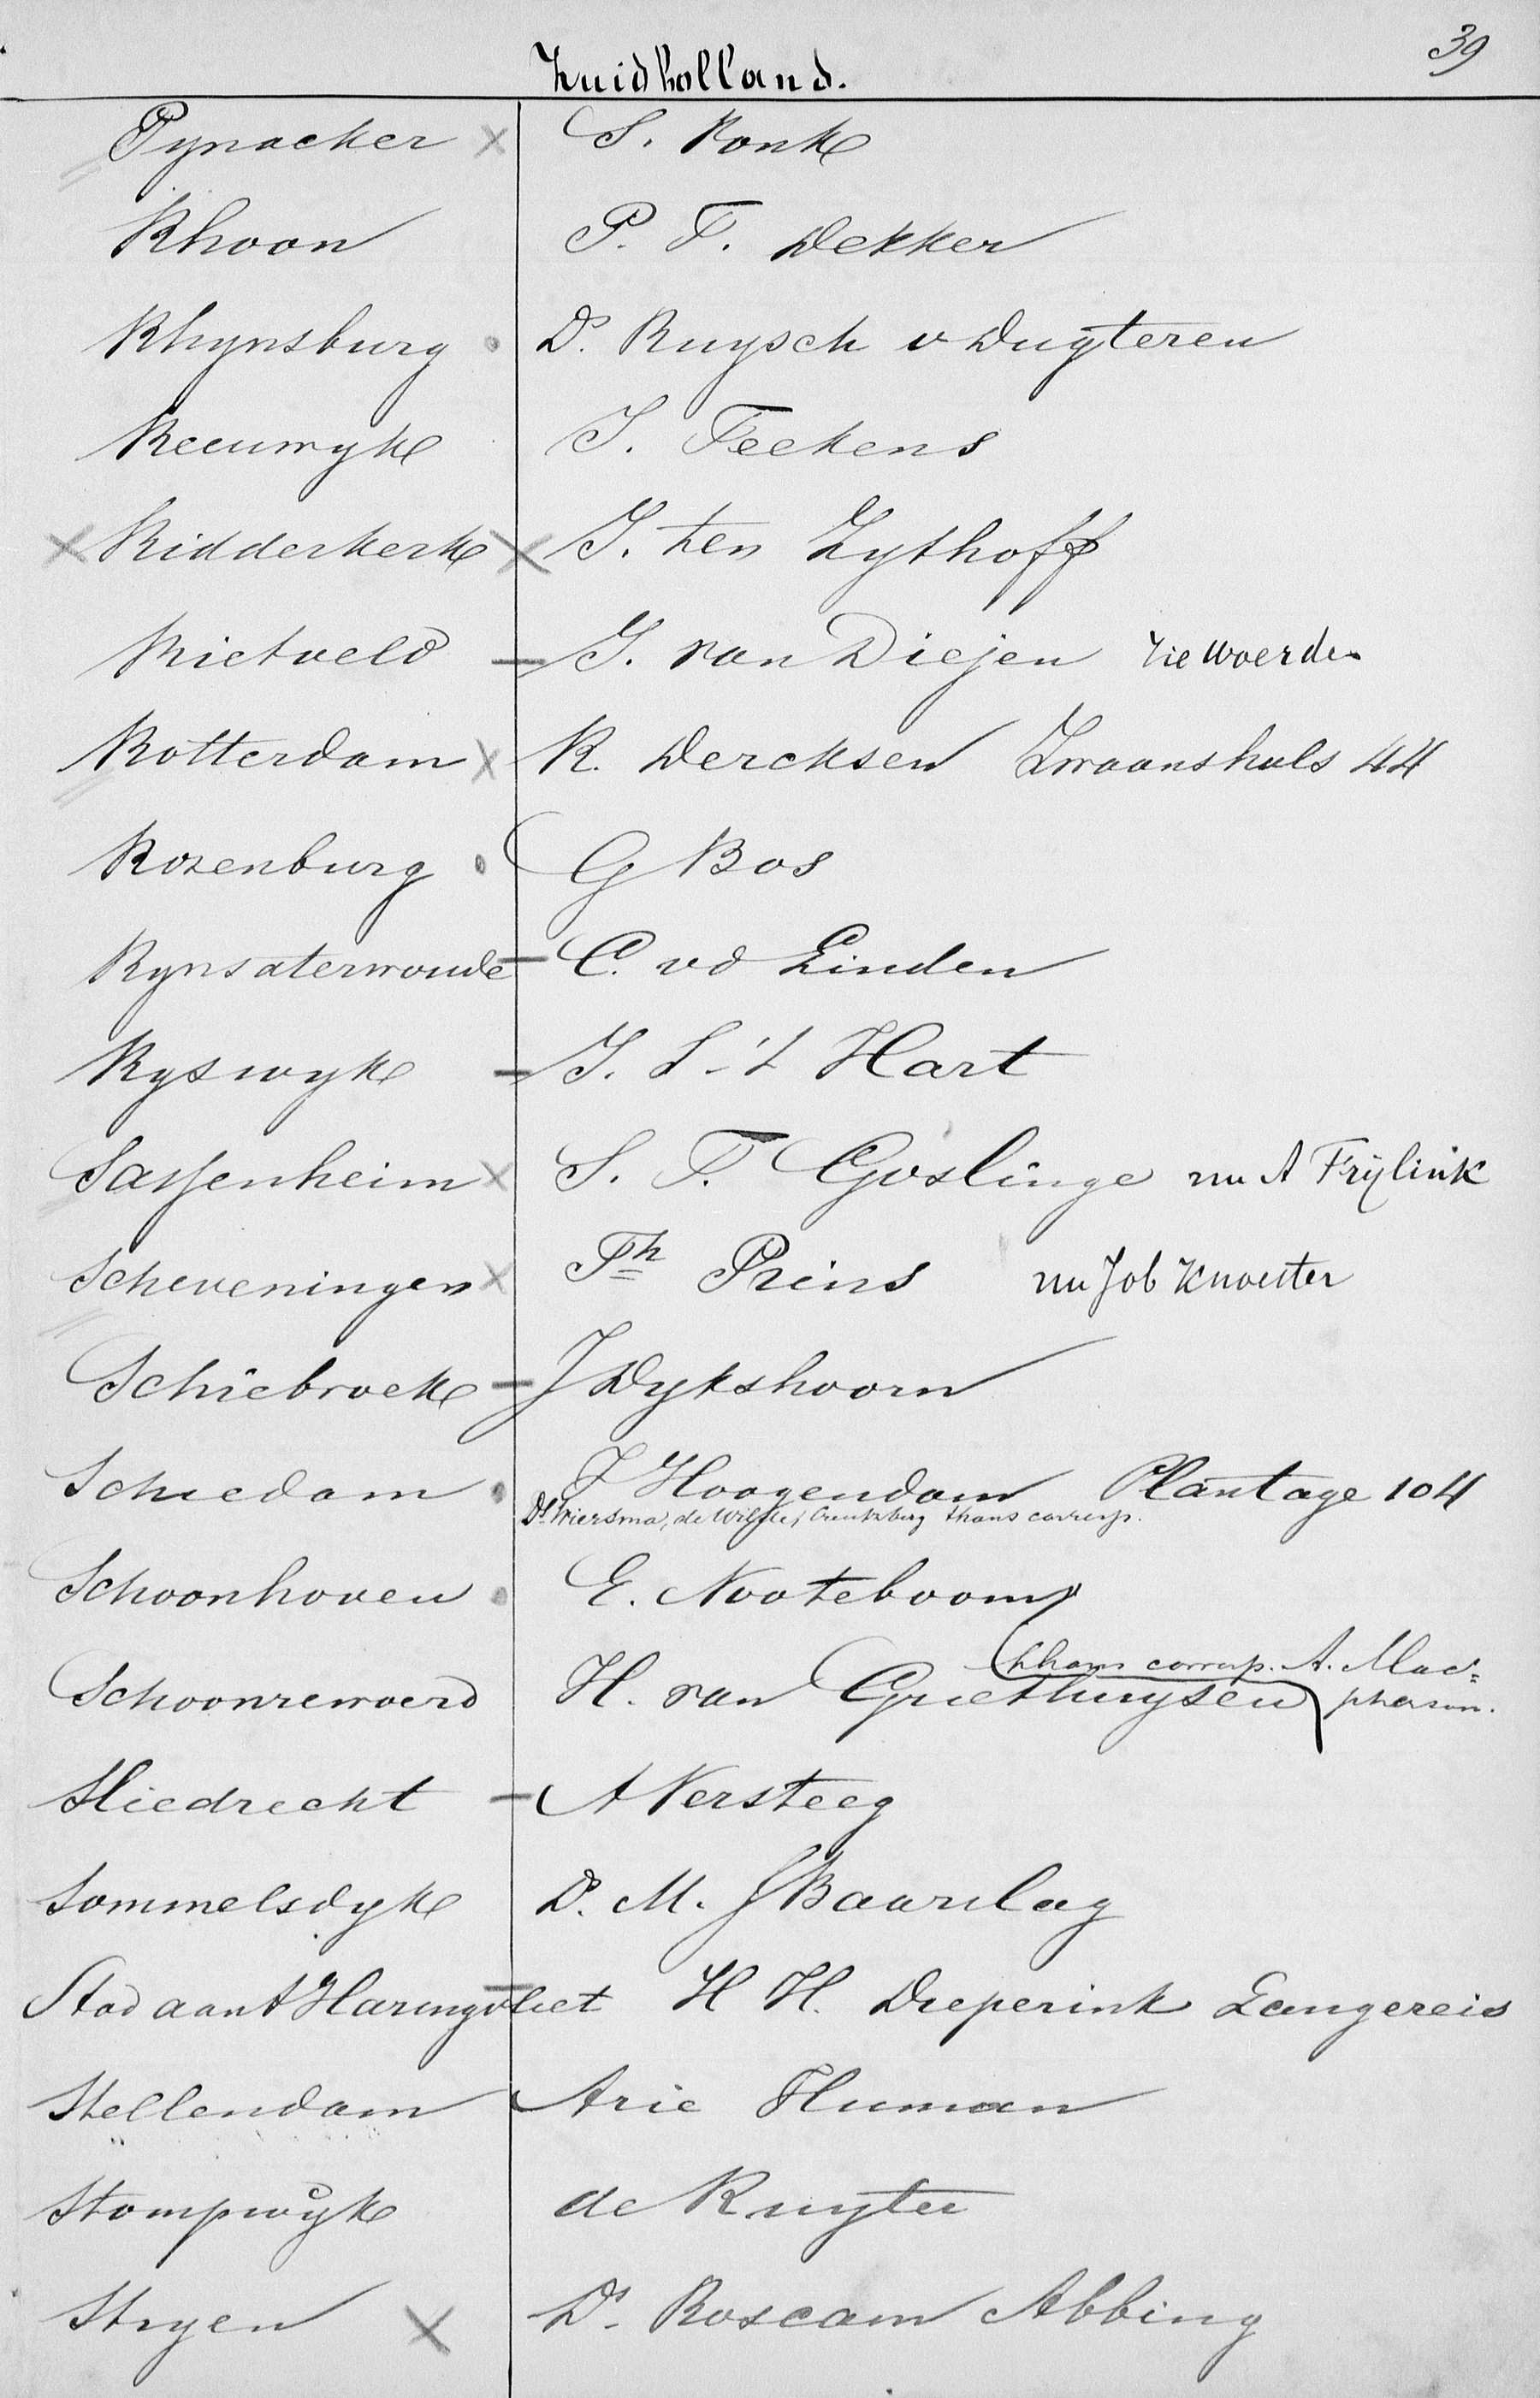 39
Zuidholland.
Pynacker × S. Vonk
Rhoon P. F. Dekker
Rhynsburg Ds. Ruysch v Dugteren
Reeuwyk J. Feekens
× Ridderkerk × J. ten Zythoff
Rietveld — J. van Diejen zie Woerden
Rotterdam × R. Dercksen Zwaanshals 44
Rozenburg G Bos
Rynsaterwoude — C. vd Linden
Ryswyk — J. L. 't Hart
Sassenheim × S. F. Goslinge nu A Frijlink
Scheveningen × Th Prins nu Job Knoester
Schiebroek — J Dykshoorn
Schiedam J Hoogendam Plantage 104
Ds. Wiersma, de Wilde, Creutzberg thans corresp.
Schoonhoven E. Nooteboom
thans corresp. A. Mac=
Schoonrewoerd H. van Griethuysen pherson.
Sliedrecht — A Versteeg
Sommelsdyk Ds. M. J Baarslag
Stad aan 't Haringvliet H H. Dieperink Langereis
Stellendam Arie Human
Stompwyk de Ruyter
Stryen × Ds. Roscam Abbing